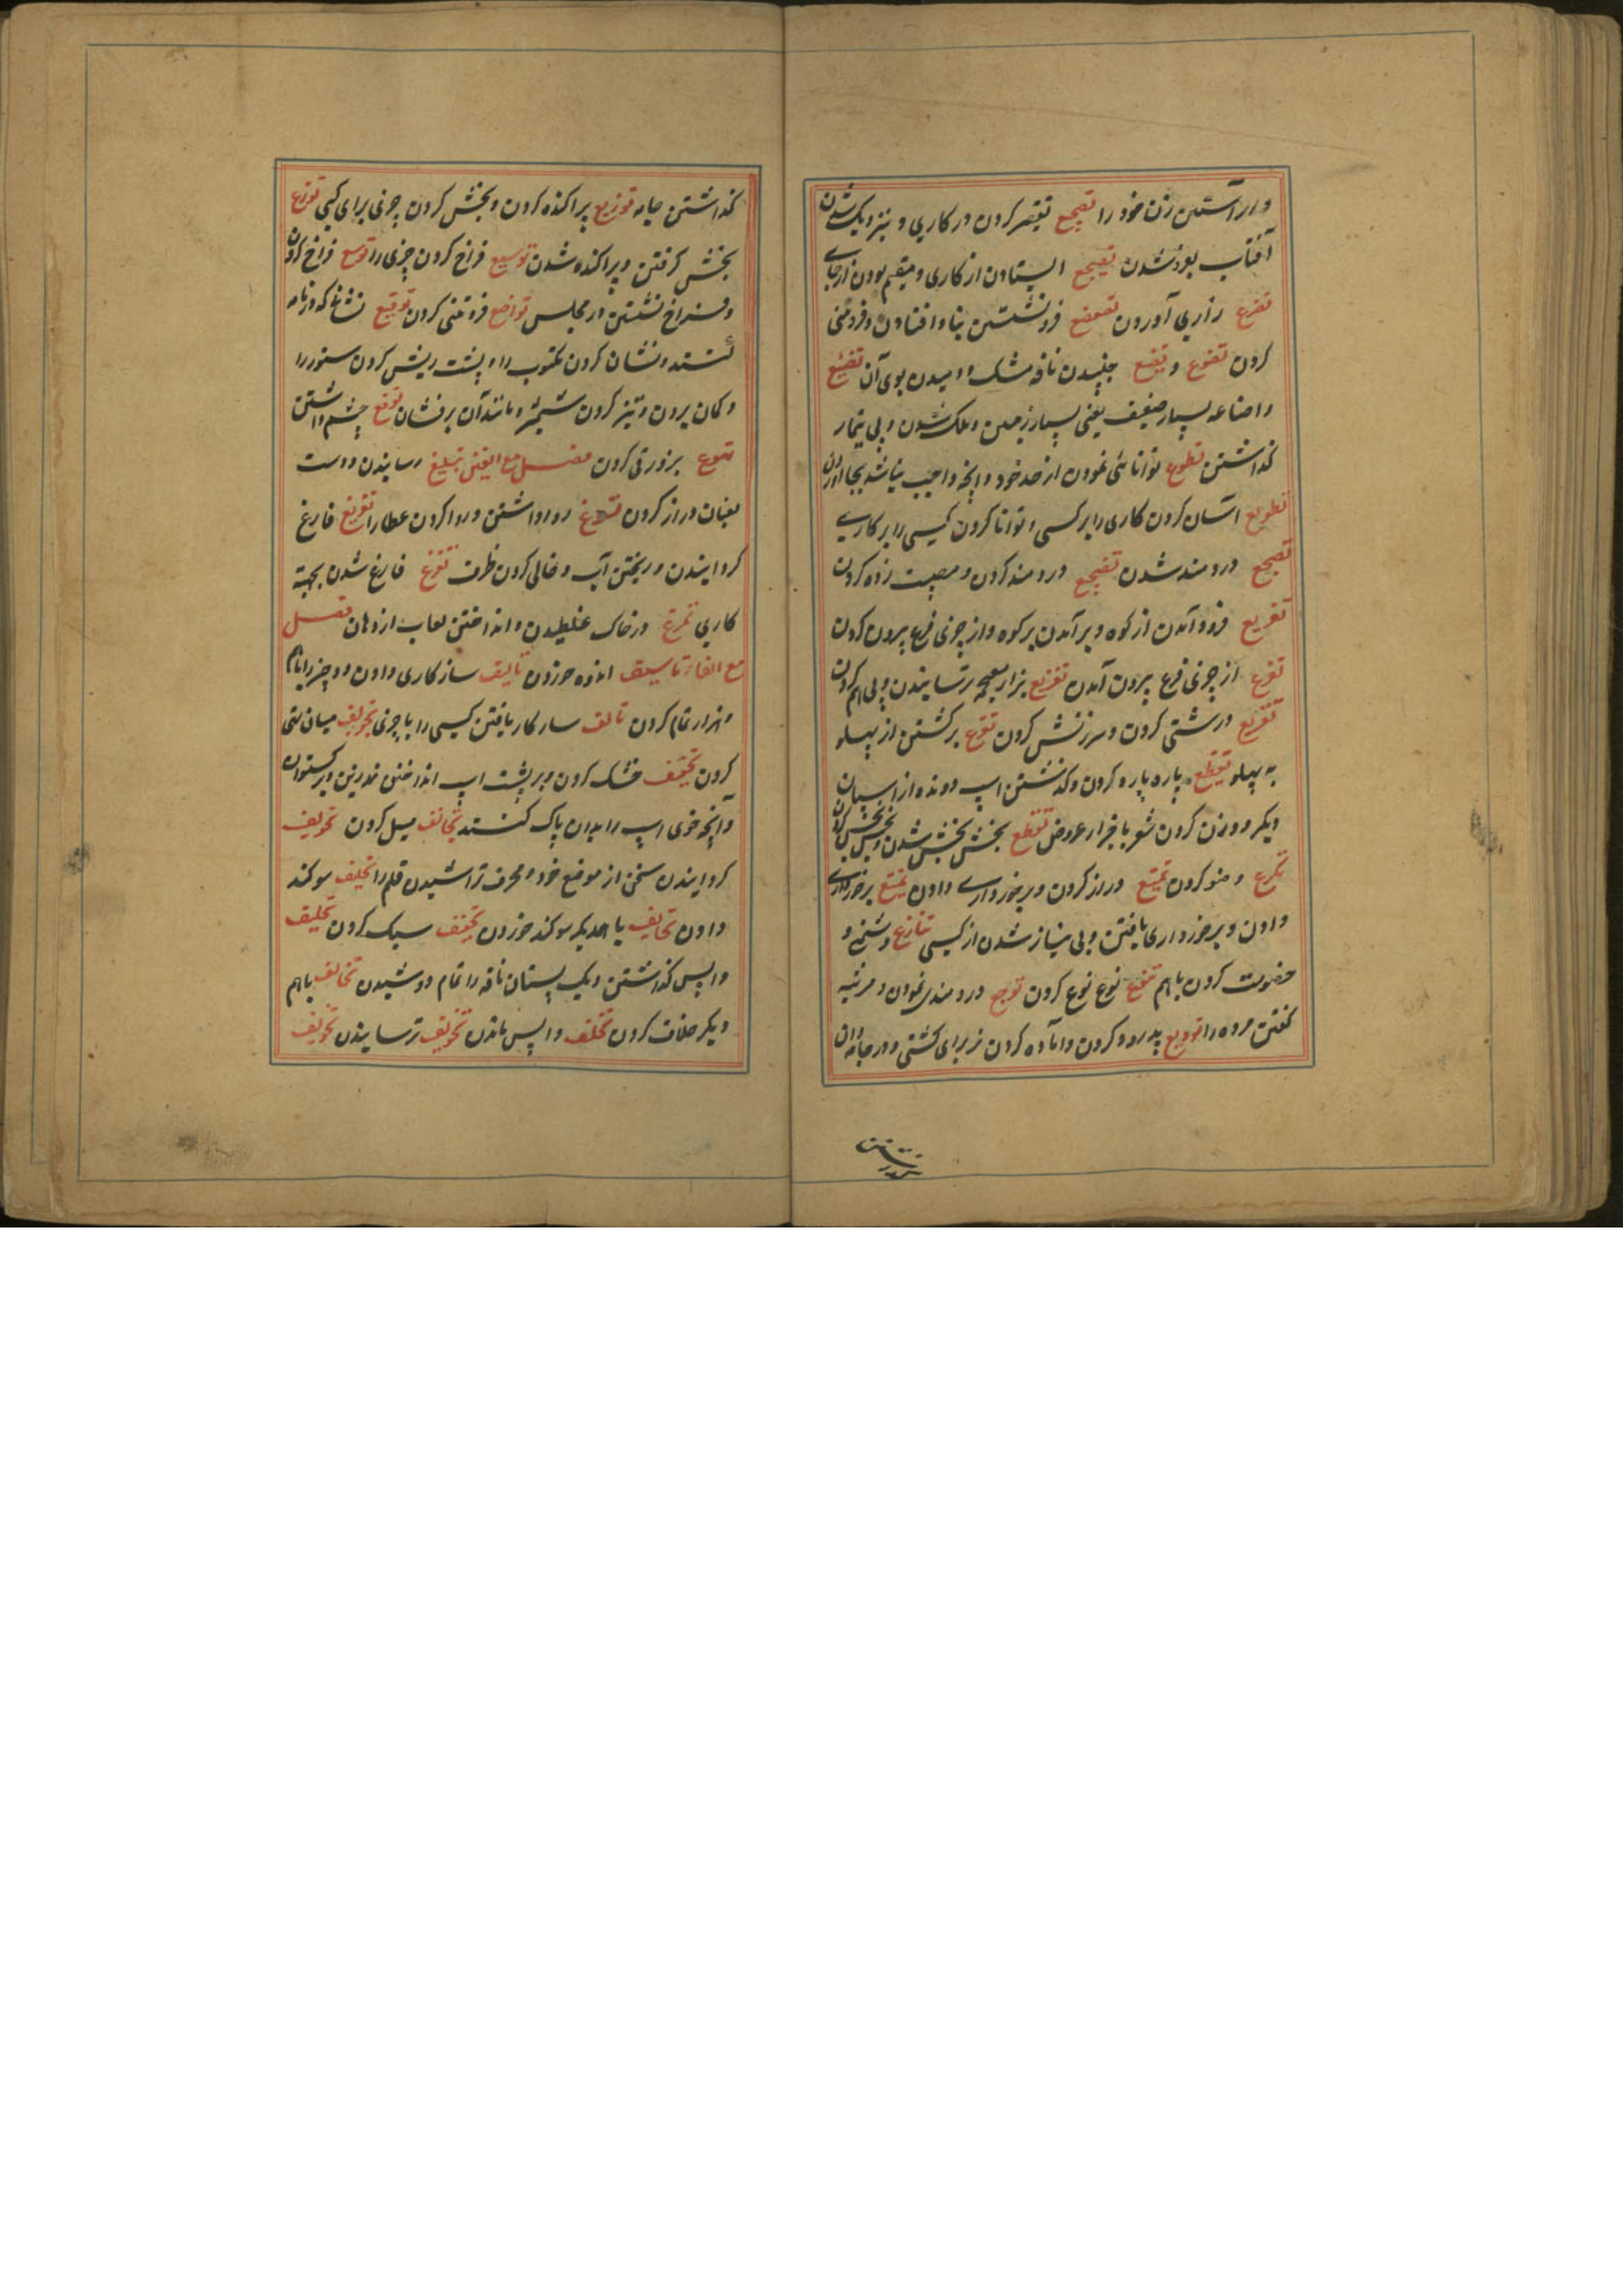 و آراستن زن خود را تضجیع تقصیر کردن در کاری و نیز نزدیک شدن
آفتاب بفرو شدن ایستادن از کاری و مقیم بودن از جای
تضرع زاری آوردن تضعضع فرو نشستن بنا و افتادن و فروتنی
کردن تضوع و تضیع جنبیدن نافه مشک و دمیدن بوی آن تضییع
و اضاعه بسیار ضعیف یعنی بسیار زمین و هلک شدن و بی تیمار
گذاشتن تطوع توانائی نمودن از حد خود و آنچه واجب نباشد بجا آوردن
تطویع آسان کردن کاری را بر کسی و توانا کردن کسی را بر کاری
تفجع دردمند شدن تفجیع دردمند کردن و مصیبت زده کردن
تفریع فرود آمدن از کوه و بر آمدن بر کوه و از چیزی فرع بیرون کردن
تفرع از چیزی فرع بیرون آمدن تفزیع ترسانیدن و بی بیم کردن
تقریع درشتی کردن و سرزنش کردن تقرع برگشتن از پهلو
به پهلو تقطیع پاره پاره کردن و گذشتن اسپ دونده از اسپان
دیگر و وزن کردن شعر باجزاء عروض تقطع بخش بخش شدن و بخش بخش کردن
تکرع وضو کردن تمتیع دراز کردن و برخورداری دادن تمتع برخورداری
دادن و برخورداری یافتن و بی نیاز شدن از کسی تنازع دشمنی و
خصومت کردن باهم تنوع نوع نوع کردن توجع دردمندی نمودن و مرثیه
گفتن مرده را تودیع پدرود کردن و آماده کردن نر برای گشنی و در جامه دان
گذاشتن جامه توزیع پراکنده کردن و بخش کردن چیزی برای کسی توزع
بخش گرفتن و پراکنده شدن توسیع فراخ کردن چیزی را توسع فراخ کردن
و فراخ نشستن در مجلس تواضع فروتنی کردن توقیع نشانی که در نامه
کنند و نشان کردن مکتوب را و پشت ریش کردن ستور را
و گمان بردن و تیز کردن شمشیر و مانند آن بر فشان توقع چشم داشتن
تهوع بزور قی کردن فصل مع الغین تبلیغ رسانیدن و دست
بعنان دراز کردن تسویغ روا داشتن و روا کردن عطا را تفریغ فارغ
گردانیدن و ریختن آب و خالی کردن ظرف تفرغ فارغ شدن بجهته
کاری تمرغ در خاک غلطیدن و انداختن لعاب از دهان فصل
مع الفاء تاسیف اندوه خوردن تالیف سازگاری دادن دو چیز را باهم
و هزار تمام کردن تالف سازگار یافتن کسی را با چیزی تجویف میان تهی
کردن تجفیف خشک کردن و بر پشت اسپ انداختن نمدزین و برگستوان
و آنچه خوی اسپ را بدان پاک کنند تجانف میل کردن تحریف
گردانیدن سخن از موضع خود و محرف تراشیدن قلم را تحلیف سوگند
دادن تحالف با همدیگر سوگند خوردن تخفیف سبک کردن تخلیف
واپس گذاشتن و یک پستان ناقه را تمام دوشیدن تخالف باهم
دیگر خلاف کردن تخلف واپس ماندن تخویف ترسانیدن تخوف